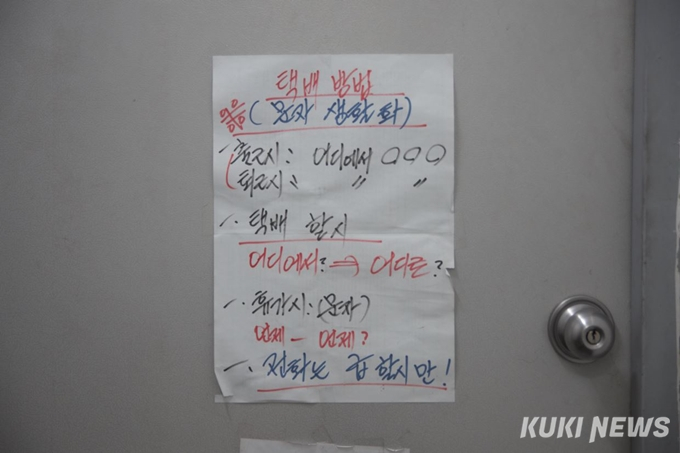 택배 방법
(문자 생활화)
출근시: 어디에서 ○○○
퇴근시 〃 〃 〃
\. 택배 할시
어디에서? ⇒ 어디로?
\. 휴가시: (문자)
언제 - 언제?
\. 전화는 급할시만!
KUKI NEWS